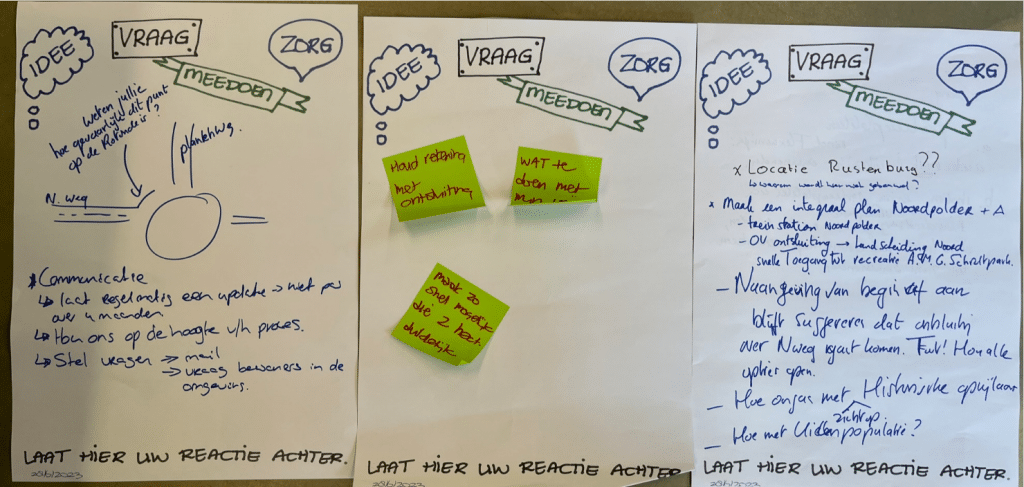 IDEE
VRAAG
ZORG
MEEDOEN
weten jullie
hoe gevaarlijk dit punt
op de Rotonde is?
N. weg
* Communicatie
↳ laat regelmatig een update → niet pas
over 4 maanden
↳ Hou ons op de hoogte v/h proces.
↳ Stel vragen → mail
→ vraag bewoners in de
omgeving.
LAAT HIER UW REACTIE ACHTER.
IDEE
VRAAG
ZORG
MEEDOEN
Houd rekening
met
ontsluiting
WAT te
doen met
maak zo
snel mogelijk
die 2 hect.
duidelijk
LAAT HIER UW REACTIE ACHTER
IDEE
VRAAG
ZORG
MEEDOEN
x Locatie Rustenburg??
x Maak een integraal plan Noordpolder + A
- trein station Noordpolder
- OV ontsluiting → Landscheiding Noord
snelle Toegang tot recreatie A.S.M.G. Schruitpark.
- Naamgeving van begin af aan
blijft suggereren dat
over N weg gaat komen. Hou alle
opties open.
- Hoe omgaan met Historische
zicht op.
- Hoe met populatie?
LAAT HIER UW REACTIE ACHTER.